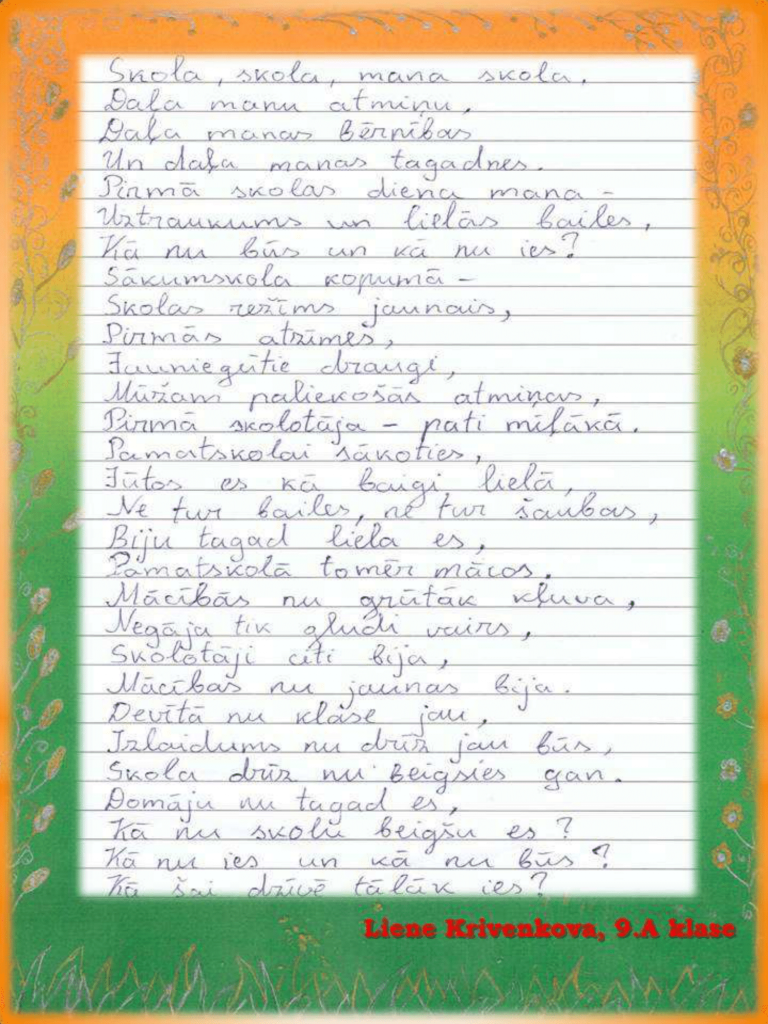 Skola, skola, mana skola.
Daļa manu atmiņu,
Daļa manas bērnības
Un daļa manas tagadnes.
Pirmā skolas diena mana -
Uztraukums un lielās bailes,
Kā nu būs un kā nu ies?
Sākumskola kopumā -
Skolas režīms jaunais,
Pirmās atzīmes,
Jauniegūtie draugi,
Mūžam paliekošās atmiņas,
Pirmā skolotāja - pati mīļākā.
Pamatskolai sākoties,
Jūtos es kā baigi lielā,
Ne tur bailes, ne tur šaubas,
Biju tagad liela es,
Pamatskolā tomēr mācos.
Mācībās nu grūtāk kļuva,
Negāja tik gludi vairs,
Skolotāji citi bija,
Mācības nu jaunas bija.
Devītā nu klase jau,
Izlaidums nu drīz jau būs,
Skola drīz nu beigsies gan.
Domāju nu tagad es,
Kā nu skolu beigšu es?
Kā nu ies un kā nu būs?
Kā šai dzīvē tālāk ies?
Liene Krivenkova, 9.A klase